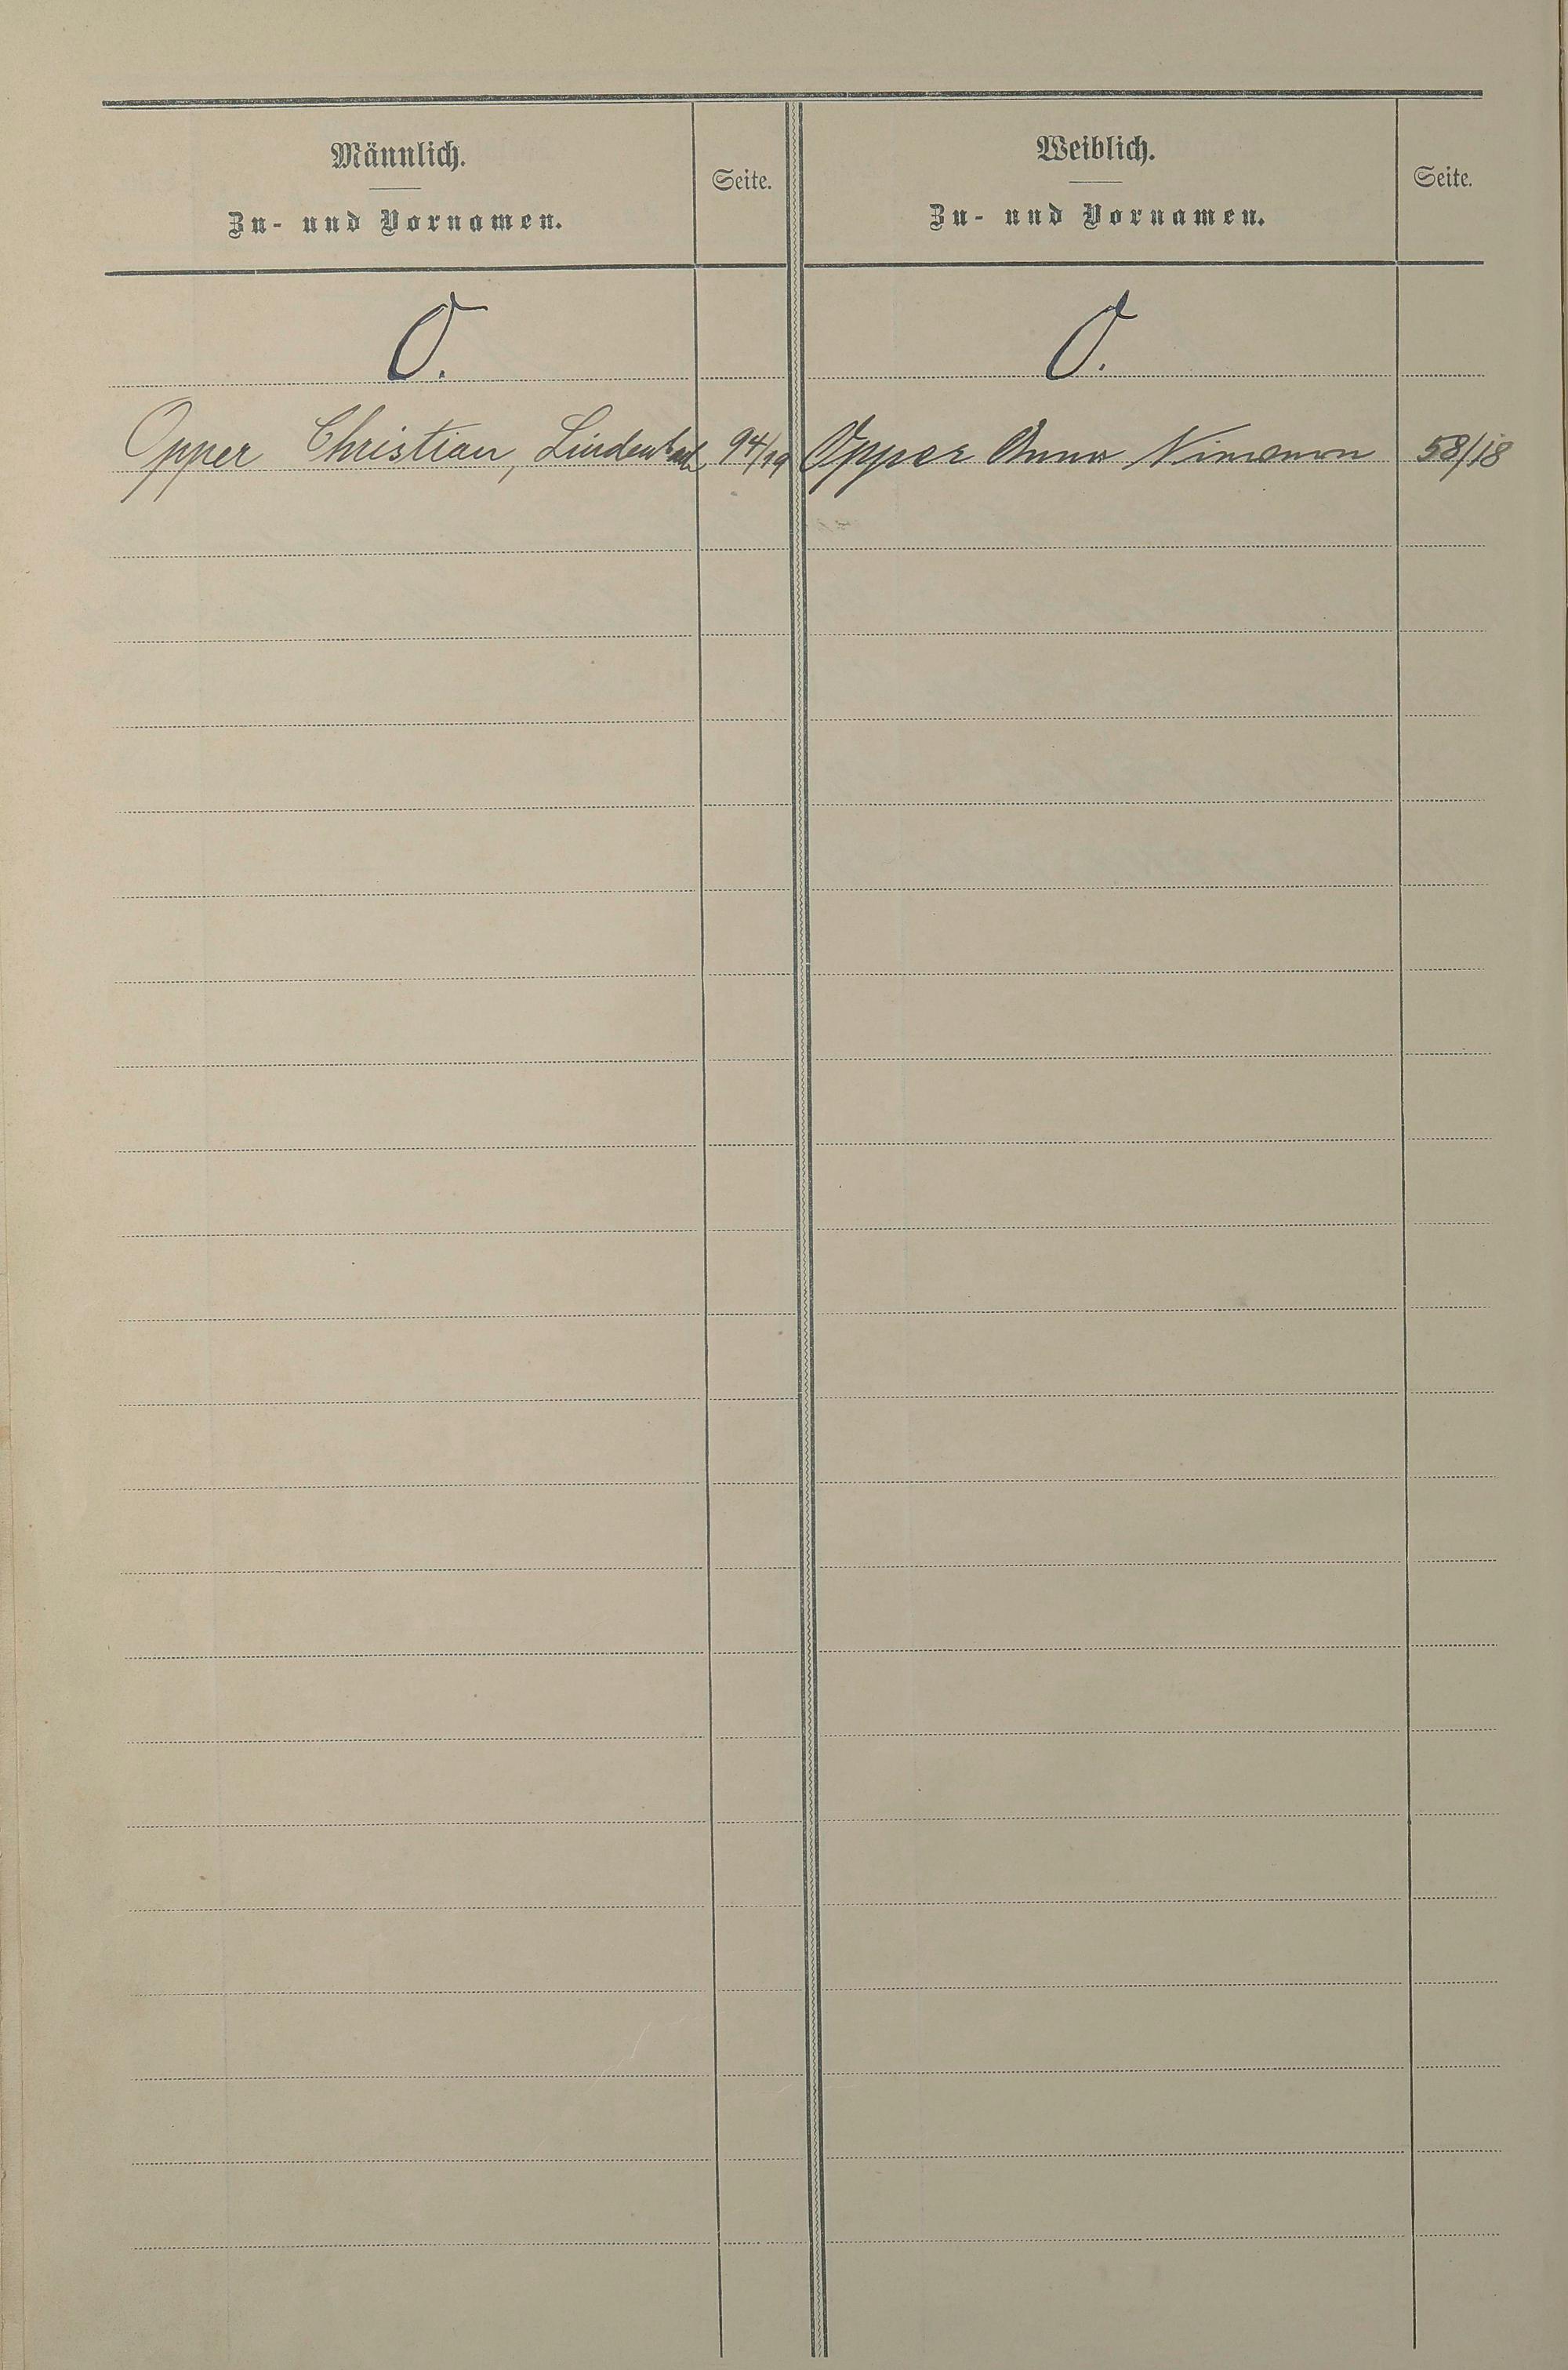 Männlich.
Zu- und Vornamen.
Seite.
Weiblich.
Zu- und Vornamen.
Seite.
O.
O.
Opper Christian, 94/19
Opper Anna 58/18